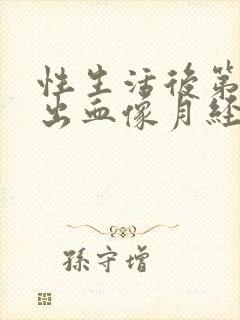 性生活後第
出血像月經
孫守增